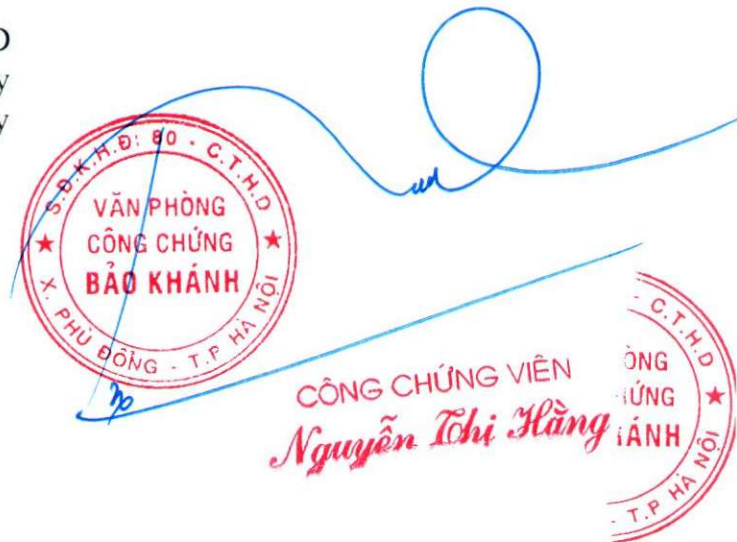 S.Đ.K.H.Đ: 80 - C.T.H.D
VĂN PHÒNG
CÔNG CHỨNG
BẢO KHÁNH
X. PHÙ ĐỔNG - T.P HÀ NỘI
CÔNG CHỨNG VIÊN
Nguyễn Thị Hằng
- C.T.H.D
ÒNG
HỨNG
HÁNH
- T.P HÀ NỘI